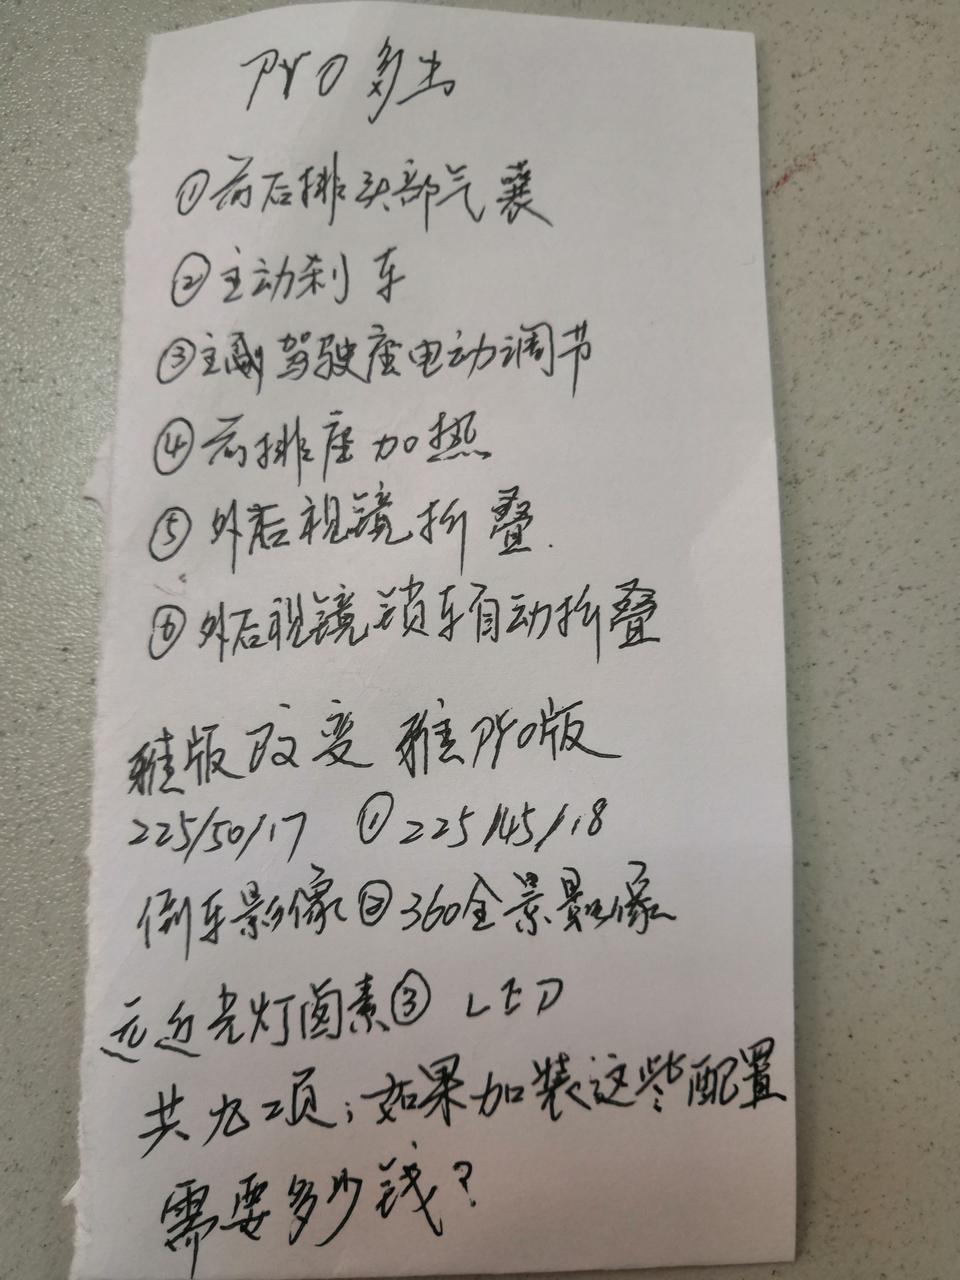 Pro多出
①前后排头部气囊
②主动刹车
③主副驾驶座电动调节
④前排座加热
⑤外后视镜折叠.
⑥外后视镜锁车自动折叠
雅版改变 雅Pro版
225/50/17 ①225/45/18
倒车影像②360全景影像
远近光灯卤素③ LED
共九项;如果加装这些配置
需要多少钱?